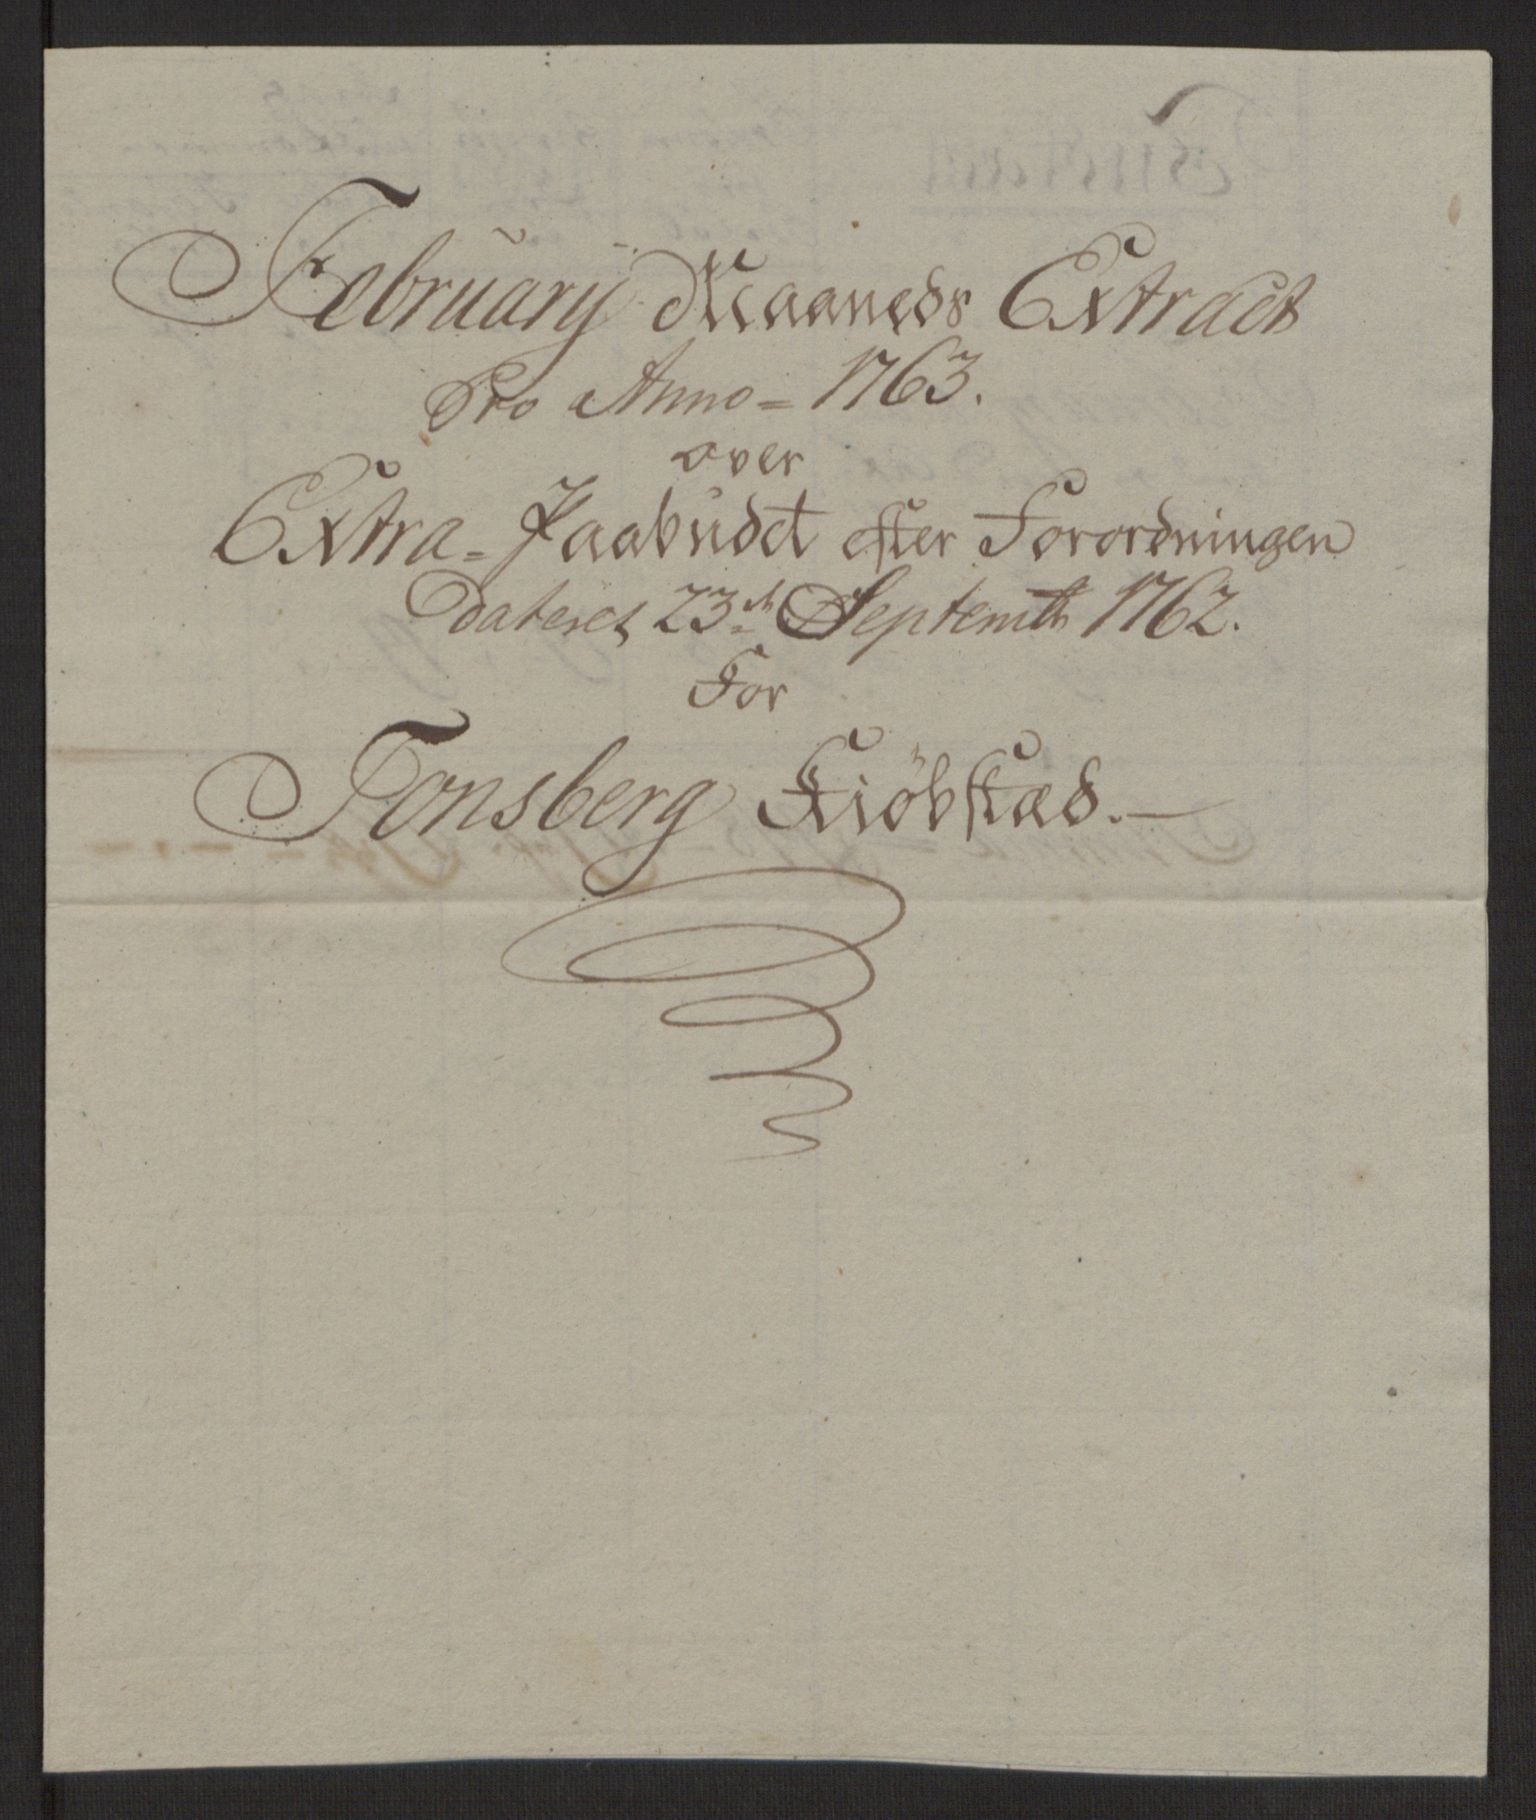 Februarij Maaneds Extract
Pro Anno = 1763.
over
Extra = Paabudet efter Forordningen
Dateret 23de Septembr 1762.
For
Tonsberg Kiöbstæd.